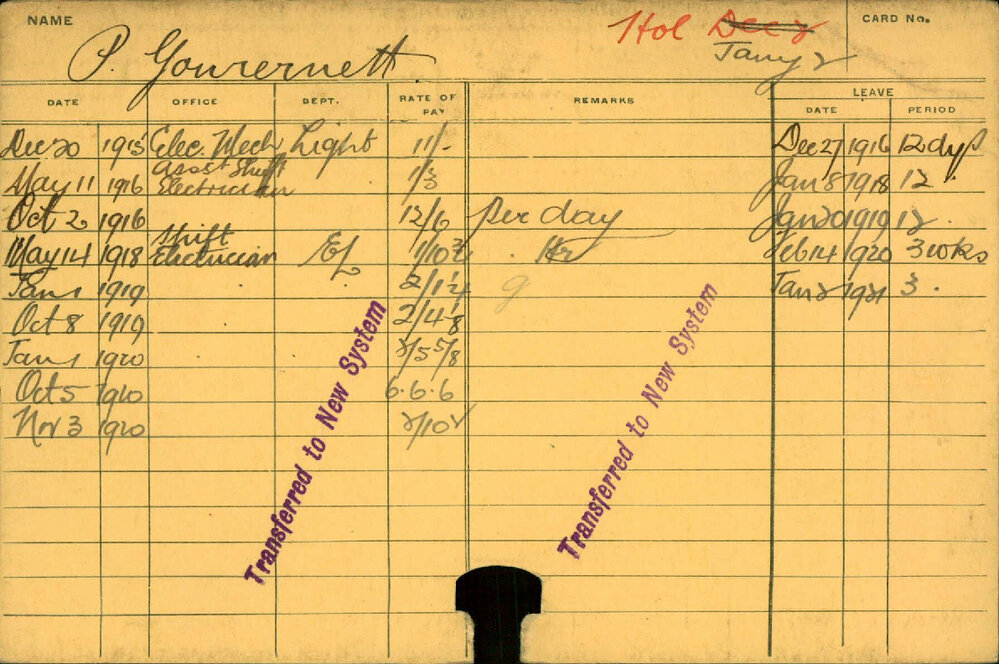 NAME
Hol Decy
CARD No.
P. Gouvernett
Jany 2
LEAVE
DATE OFFICE DEPT. RATE OF PAY REMARKS DATE PERIOD
Dec 20 1915 Elec. Mech Light 11/- Dec 27 1916 12 dys
May 11 1916 Asst Shift Electrician 1/3 Jan 8 1918 12
Oct 2 1916 12/6 per day Jan 20 1919 12
May 14 1918 Shift Electrician EL 1/10¾ Hr Feb 14 1920 3 wks
Jan 1 1919 2/1¼ Jan 2 1921 3
Oct 8 1919 2/4⅛
Jan 1 1920 2/5⅝
Oct 5 1920 6.6.6
Nov 3 1920 2/10½
Transferred to New System
Transferred to New System